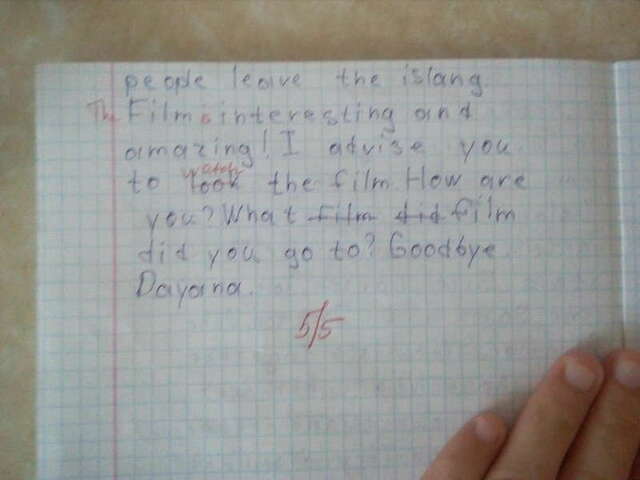 people leave the islang
The Film is interesting and
amazing! I advise you
watch
to look the film. How are
you? What film did film
did you go to? Goodbye.
Dayana.
5/5